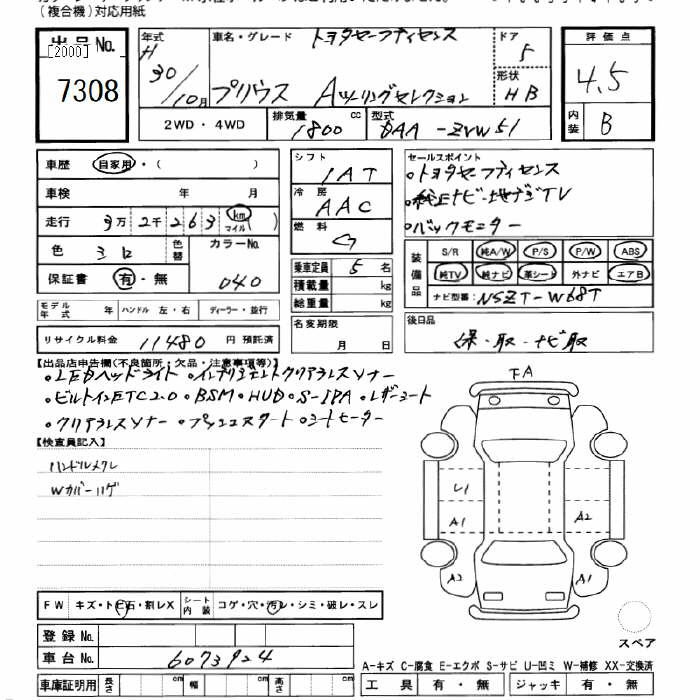 (複合機)対応用紙
出品No.
[2000]
7308
年式 車名・グレード トヨタセーフティセンス ドア 5
H 30/10月 プリウス Aツーリングセレクション 形状 HB
評価点 4.5
内装 B
2WD・4WD 排気量 1800 cc 型式 DAA-ZVW51
車歴 自家用・( )
車検 年 月
走行 3万2千263 km マイル( )
色 シロ 色替 カラーNo. 040
保証書 有・無
モデル年式 年 ハンドル 左・右 ディーラー・並行
リサイクル料金 11480 円 預託済
シフト IAT
冷房 AAC
燃料 G
乗車定員 5 名
積載量 kg
総重量 kg
名変期限 月 日
セールスポイント
・トヨタセーフティセンス
・純正ナビ・地デジTV
・バックモニター
装備品 S/R 純A/W P/S P/W ABS
純TV 純ナビ 革シート 外ナビ エアB
ナビ型番: NSZT-W68T
後日品
保・取・ナビ取
【出品店申告欄(不良箇所・欠品・注意事項等)】
・LEDヘッドライト・インテリジェントクリアランスソナー
・ビルトインETC2.0・BSM・HUD・S-IPA・レザーシート
・クリアランスソナー・プッシュスタート・シートヒーター
【検査員記入】
ハンドルスレ
Wカバーハゲ
FA
L1
A1
A2
A2
A1
スペア
FW キズ・トビ石・割レX シート内装 コゲ・穴・汚レ・シミ・破レ・スレ
登録No.
車台No. 6073924
車庫証明用 長さ cm 幅 cm 高さ cm
A-キズ C-腐食 E-エクボ S-サビ U-凹ミ W-補修 XX-交換済
工具 有・無 ジャッキ 有・無